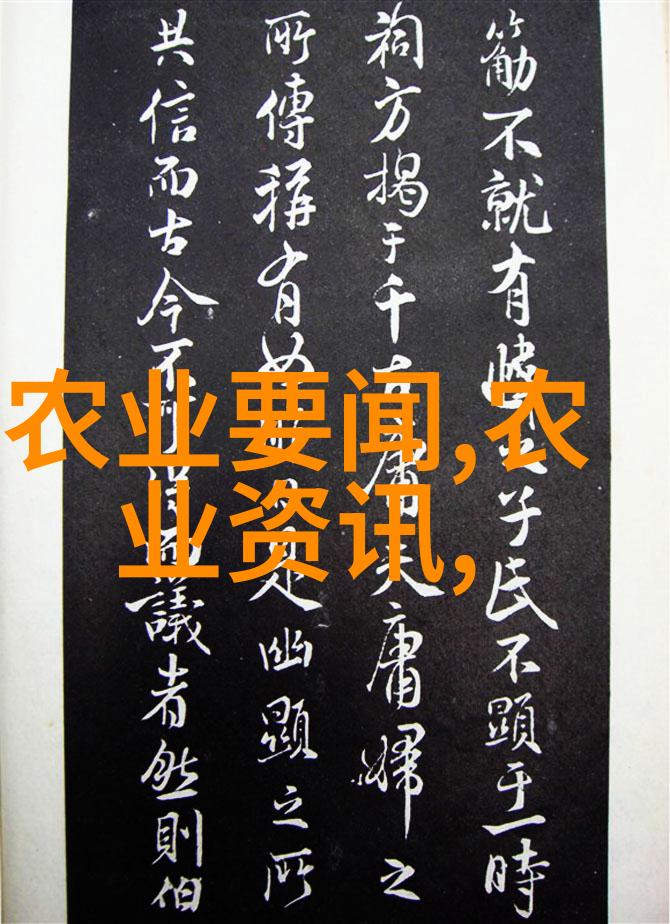 不就有氏不顯于一時
祠方揭于千古庸夫庸婦之
所傳稱有如是幽顯之所
共信而古今不可得而議者然則伯
农业要闻,农
业资讯,